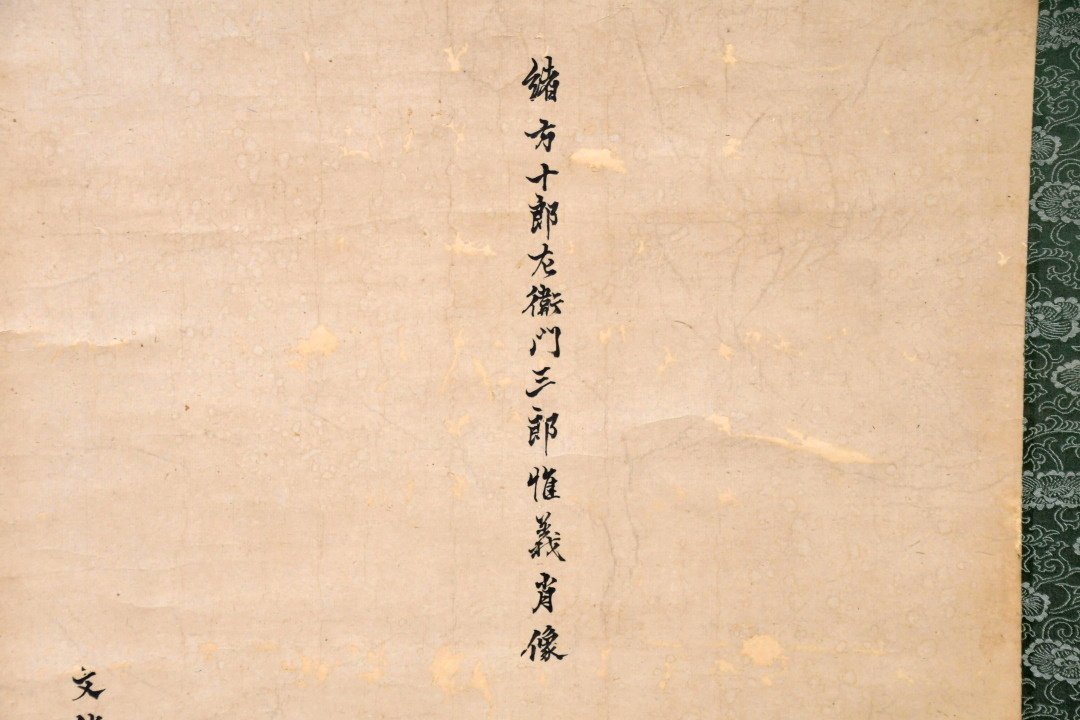 緒方十郎左衛門三郎惟義肖像
文